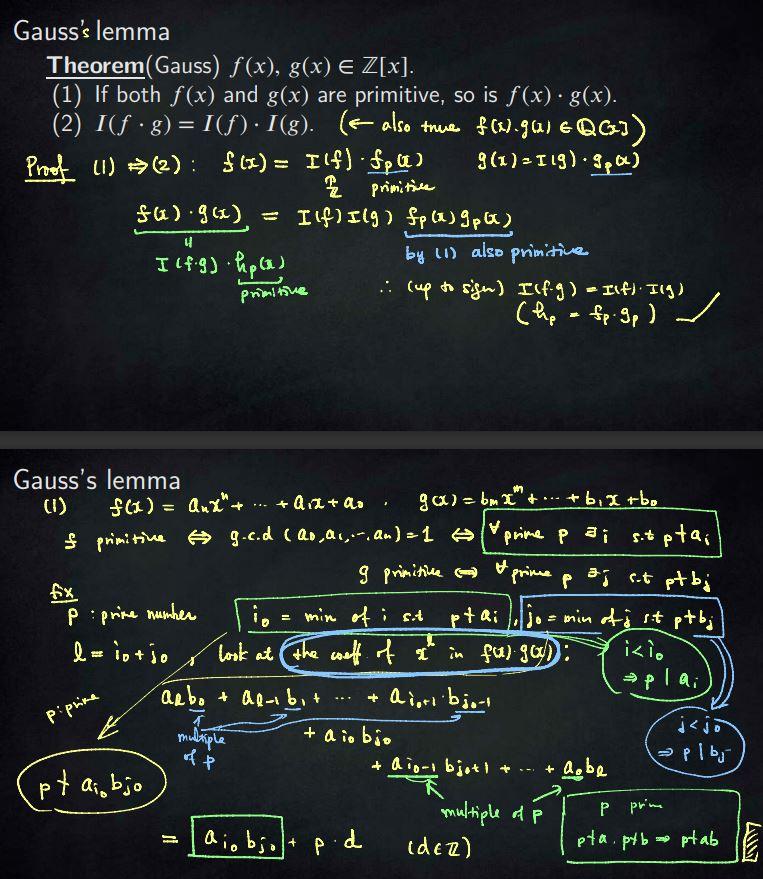 Gauss's lemma
Theorem(Gauss) f(x), g(x) ∈ ℤ[x].
(1) If both f(x) and g(x) are primitive, so is f(x) · g(x).
(2) I(f · g) = I(f) · I(g). (← also true f(x)·g(x) ∈ ℚ[x])
Proof (1) ⇒ (2) : f(x) = I(f) · f_p(x) g(x) = I(g) · g_p(x)
primitive
f(x) · g(x) = I(f) I(g) f_p(x) g_p(x)
by (1) also primitive
I(f·g) · h_p(x)
primitive
∴ (up to sign) I(f·g) = I(f)·I(g)
(h_p = f_p·g_p) ✓
Gauss's lemma
(1) f(x) = a_n x^n + ··· + a_1 x + a_0 , g(x) = b_m x^m + ··· + b_1 x + b_0
f primitive ⇔ g.c.d (a_0, a_1, ··, a_n) = 1 ⇔ ∀prime p ∃i s.t p∤a_i
g primitive ⇔ ∀prime p ∃j s.t p∤b_j
fix
p : prime number i_0 = min of i s.t p∤a_i , j_0 = min of j s.t p∤b_j
l = i_0 + j_0 , look at the coeff. of x^l in f(x)·g(x) :
i < i_0
⇒ p | a_i
a_l b_0 + a_{l-1} b_1 + ··· + a_{i_0+1} · b_{j_0-1}
p : prime
multiple
of p
j < j_0
⇒ p | b_j
+ a_{i_0} b_{j_0}
+ a_{i_0-1} b_{j_0+1} + ··· + a_0 b_l
p ∤ a_{i_0} b_{j_0}
multiple of p
p prime
p∤a , p∤b ⇒ p∤ab
= a_{i_0} b_{j_0} + p · d (d∈ℤ)